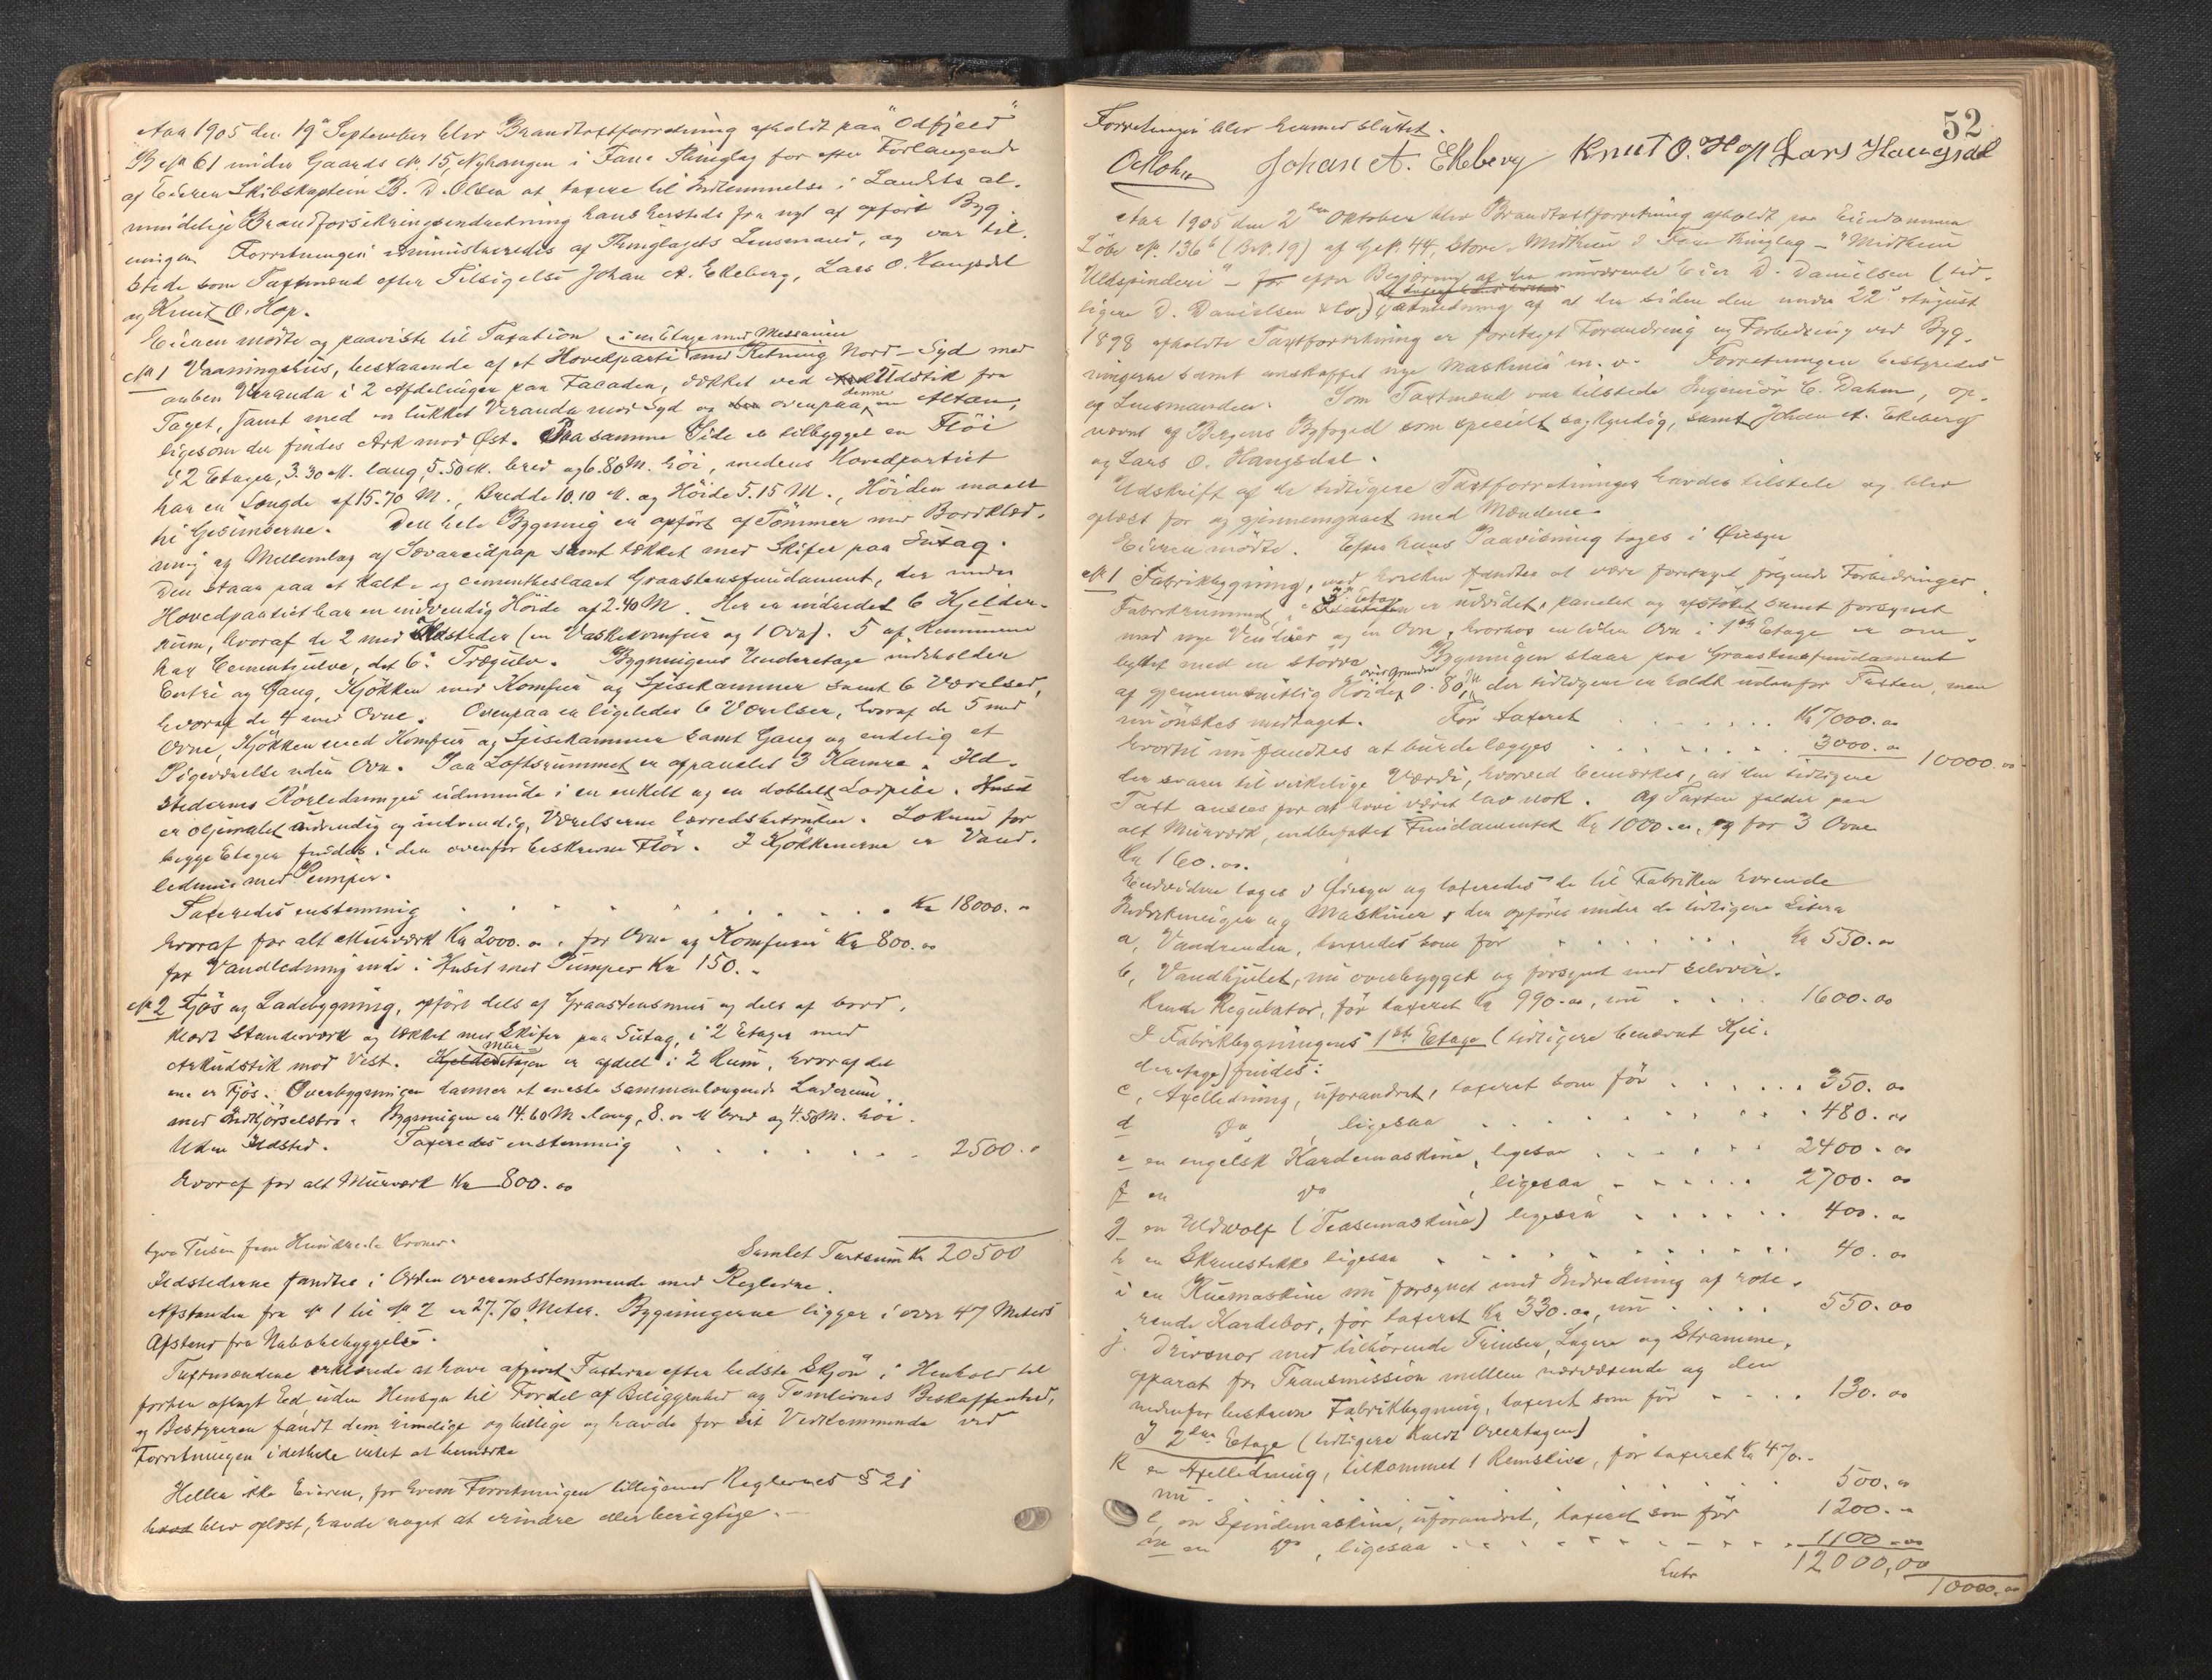 Aar 1905 den 19de September blev Brandtaxtforretning afholdt paa "Odfjeld"
B. No 61 under Gaards No 15, Nyhangen i Fane Thinglag for efter Forlangende
af Eieren Skibskaptein B. D. Olsen at taxere til Indlemmelse i Landets al-
mindelige Brandforsikringsindretning hans hersteds fra nyt af opført Byg-
ninger. Forretningen administreredes af Thinglagets Lensmand, og var til-
stede som Taxtmænd efter Tilsigelse Johan A. Ekeberg, Lars O. Haugsdal
og Knut O. Hop.
Eieren mødte og paaviste til Taxation
No 1 Vaaningshus, bestaaende af et Hovedparti i en Etage med Messanin med Retning Nord-Syd med
aaben Veranda i 2 Afdelinger paa Facaden, dækket ved Udstik fra
Taget, samt med en lukket Veranda mod Syd og ovenpaa denne en Altan,
ligesom der findes Ark mod Øst. Paa samme Side er tilbygget en Fløi
i 2 Etager, 3.30 M. lang, 5.50 M. bred og 6.80 M. høi, medens Hovedpartiet
har en Længde af 15.70 M., Bredde 10.10 M. og Høide 5.15 M., Høiden maalt
til Gesimserne. Den hele Bygning er opført af Tømmer med Bordklæd-
ning og Mellemlag af Sævareidpap samt tækket med Skifer paa Sutag.
Den staar paa et kalk- og cementbeslaaet Graastensfundament, der under
Hovedpartiet har en indvendig Høide af 2.40 M. Her er indredet 6 Kjelder-
rum, hvoraf de 2 med Ildsteder (en Vaskekomfur og 1 Ovn). 5 af Rummene
har Cementgulve, det 6te Trægulv. Bygningens Underetage indeholder
Entré og Gang, Kjøkken med Komfur og Spisekammer samt 6 Værelser,
hvoraf de 4 med Ovne. Ovenpaa er ligeledes 6 Værelser, hvoraf de 5 med
Ovne, Kjøkken med Komfur og Spisekammer samt Gang og endelig et
Pigeværelse uden Ovn. Paa Loftsrummet er afpanelet 3 Kamre. Ild-
stedernes Rørledninger udmunde i en enkelt og en dobbelt Lodpibe. Huset
er oljemalet udvendig og indvendig, Værelserne lærredsbetrukne. Lokum for
begge Etager findes i den ovenfor beskrevne Fløi. I Kjøkkenerne er Vand-
ledning med Pumper.
Taxeredes enstemmig . . . . . . . . Kr 18000.00
hvoraf for alt Murværk Kr 2000.00, for Ovne og Komfurer Kr 800.00
for Vandledning inde i Huset med Pumper Kr 150.-
No 2 Fjøs og Ladebygning, opført dels af Graastensmur og dels af bord-
klædt Stænderværk og tækket med Skifer paa Sutag, i 2 Etager med
Arkudstik mod Vest. Kjelder Mur-etagen er afdelt i 2 Rum, hvoraf det
ene er Fjøs. Overbygningen danner et eneste sammenhængende Laderum
med Indkjørselsbro. Bygningen er 14.60 M lang, 8.00 M bred og 4.50 M. høi.
Uden Ildsted. Taxeredes enstemmig . . . . . . 2500.00
hvoraf for alt Murværk Kr 800.00
tyve Tusen fem Hundrede Kroner. Samlet Taxtsum Kr 20500
Ildstederne fandtes i Orden overensstemmende med Reglerne.
Afstanden fra No 1 til No 2 er 27.70 Meter. Bygningerne ligger i over 47 Meters
Afstand fra Nabobebyggelse.
Taxtmændene erklærede at have afgivet Taxterne efter bedste Skjøn i Henhold til
forhen aflagt Ed, uden Hensyn til Fordel af Beliggenhed og Tomternes Beskaffenhed,
og Bestyreren fandt dem rimelige og billige og havde for sit Vedkommende ved
Forretningen idethele intet at bemærke
Heller ikke Eieren, for hvem Forretningen tilligemed Reglernes § 21
blev oplæst, havde noget at erindre eller berigtige.-
52
Forretningen blev hermed sluttet.
Johan A. Ekeberg Knut O. Hop Lars Haugsdal
Aar 1905 den 2den Oktober blev Brandtaxtforretning afholdt paa Eiendommen
Løbe No. 136b (B.No. 19) af G.No. 44, Store Midtun i Fane Thinglag - "Midtun
Uldspinderi" - for efter Begjæring af den nuværende Eier D. Danielsen (tid-
ligere D. Danielsen & Co.) i Anledning af at der siden den under 22de August
1898 afholdte Taxtforretning er foretaget Forandring og Forbedring ved Byg-
ningerne samt anskaffet nye Maskiner m. v. Forretningen bestyredes
af Lensmanden. Som Taxtmænd var tilstede Ingeniør C. Dahm, op-
nævnt af Bergens Byfoged som specielt sagkyndig, samt Johan A. Ekeberg
og Lars O. Haugsdal.
Udskrift af de tidligere Taxtforretninger havdes tilstede og blev
oplæst for og gjennemgaaet med Mændene.
Eieren mødte. Efter hans Paavisning toges i Øiesyn
No 1 Fabrikbygning, ved hvilken fandtes at være foretaget følgende Forbedringer.
Fabrikrummet i 3die Etage er udvidet, panelet og afstøtet samt forsynet
med nye Vinduer og en Ovn, hvorhos en liden Ovn i 1ste Etage er om-
byttet med en større. Bygningen staar paa Graastensfundament
af gjennemsnitlig Høide over Grunden 0.80 M, der tidligere er holdt udenfor Taxten, men
nu ønskes medtaget. Før taxeret . . . . . . Kr 7000.00
hvortil nu fandtes at burde lægges . . . . . . 3000.00 10000.00
der svarer til virkelige Værdi, hvorved bemærkes, at den tidligere
Taxt ansees for at have været lav nok. Af Taxten falder paa
alt Murværk, indbefattet Fundamentet Kr 1000.00, og for 3 Ovne
Kr 160.00.
Endvidere toges i Øiesyn og taxeredes de til Fabriken hørende
Indretninger og Maskiner, der opføres under de tidligere Litera
a, Vandrenden, taxeredes som før . . . . . . Kr 550.00
b, Vandhjulet, nu overbygget og forsynet med selvvir-
kende Regulator, før taxeret Kr 990.00, nu . . . . 1600.00
I Fabrikbygningens 1ste Etage (tidligere benævnt Kjel-
deretage) findes:
c, Axelledning, uforandret, taxeret som før . . . . . . 350.00
d Do ligesaa . . . . . . 480.00
e en engelsk Kardemaskine, ligesaa . . . . . . 2400.00
f en Do , ligesaa . . . . . . 2700.00
g en Uldwolf (Teasemaskine) ligesaa . . . . . . 400.00
h en Skruestikke ligesaa . . . . . . 40.00
i en Ruemaskine nu forsynet med Indredning af rote-
rende Kardebor, før taxeret Kr 330.00, nu . . . . 550.00
j. Drivsnor med tilhørende Trinser, Lagere og Stramme-
apparat for Transmission mellem nærværende og den
nedenfor beskrevne Fabrikbygning, taxeret som før . . . . 130.00
I 2den Etage (tidligere kaldt Overetagen)
K en Axelledning, tilkommet 1 Remskive, før taxeret Kr 470.-
nu . . . . . . 500.00
l, en Spindemaskine, uforandret, taxeret som før 1200.00
m en Do , ligesaa . . . . . . 1100.00
Latr 12000,00 10000.00